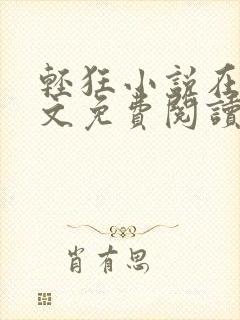 輕狂小說在
文免費閱讀
肖有思